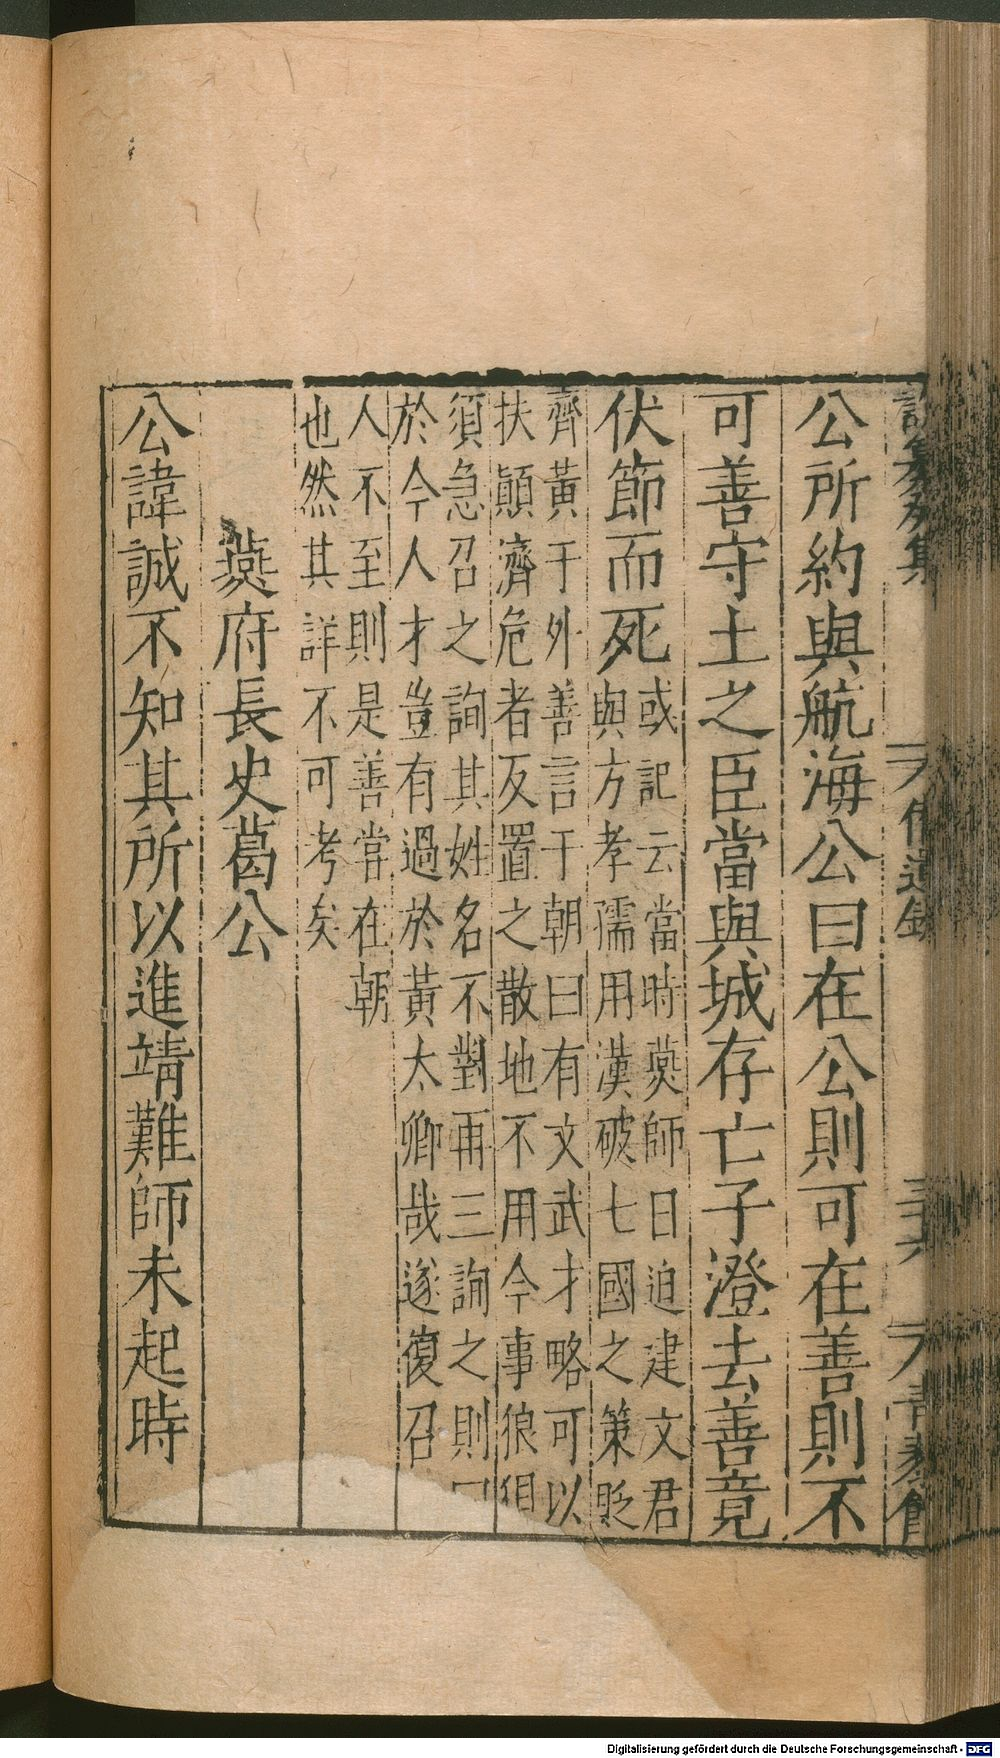 公所約與航海公曰在公則可在善則不
可善守土之臣當與城存亡子澄去善竟
伏節而死
或記云當時燕師日迫建文君
與方孝孺用漢破七國之策貶
齊黃于外善言于朝曰有文武才略可以
扶顛濟危者反置之散地不用今事狼狽
須急召之詢其姓名不對再三詢之則曰
於今人才豈有過於黃太卿哉遂復召
人不至則是善嘗在朝
也然其詳不可考矣
燕府長史葛公
公諱誠不知其所以進靖難師未起時
Digitalisierung gefördert durch die Deutsche Forschungsgemeinschaft - DFG